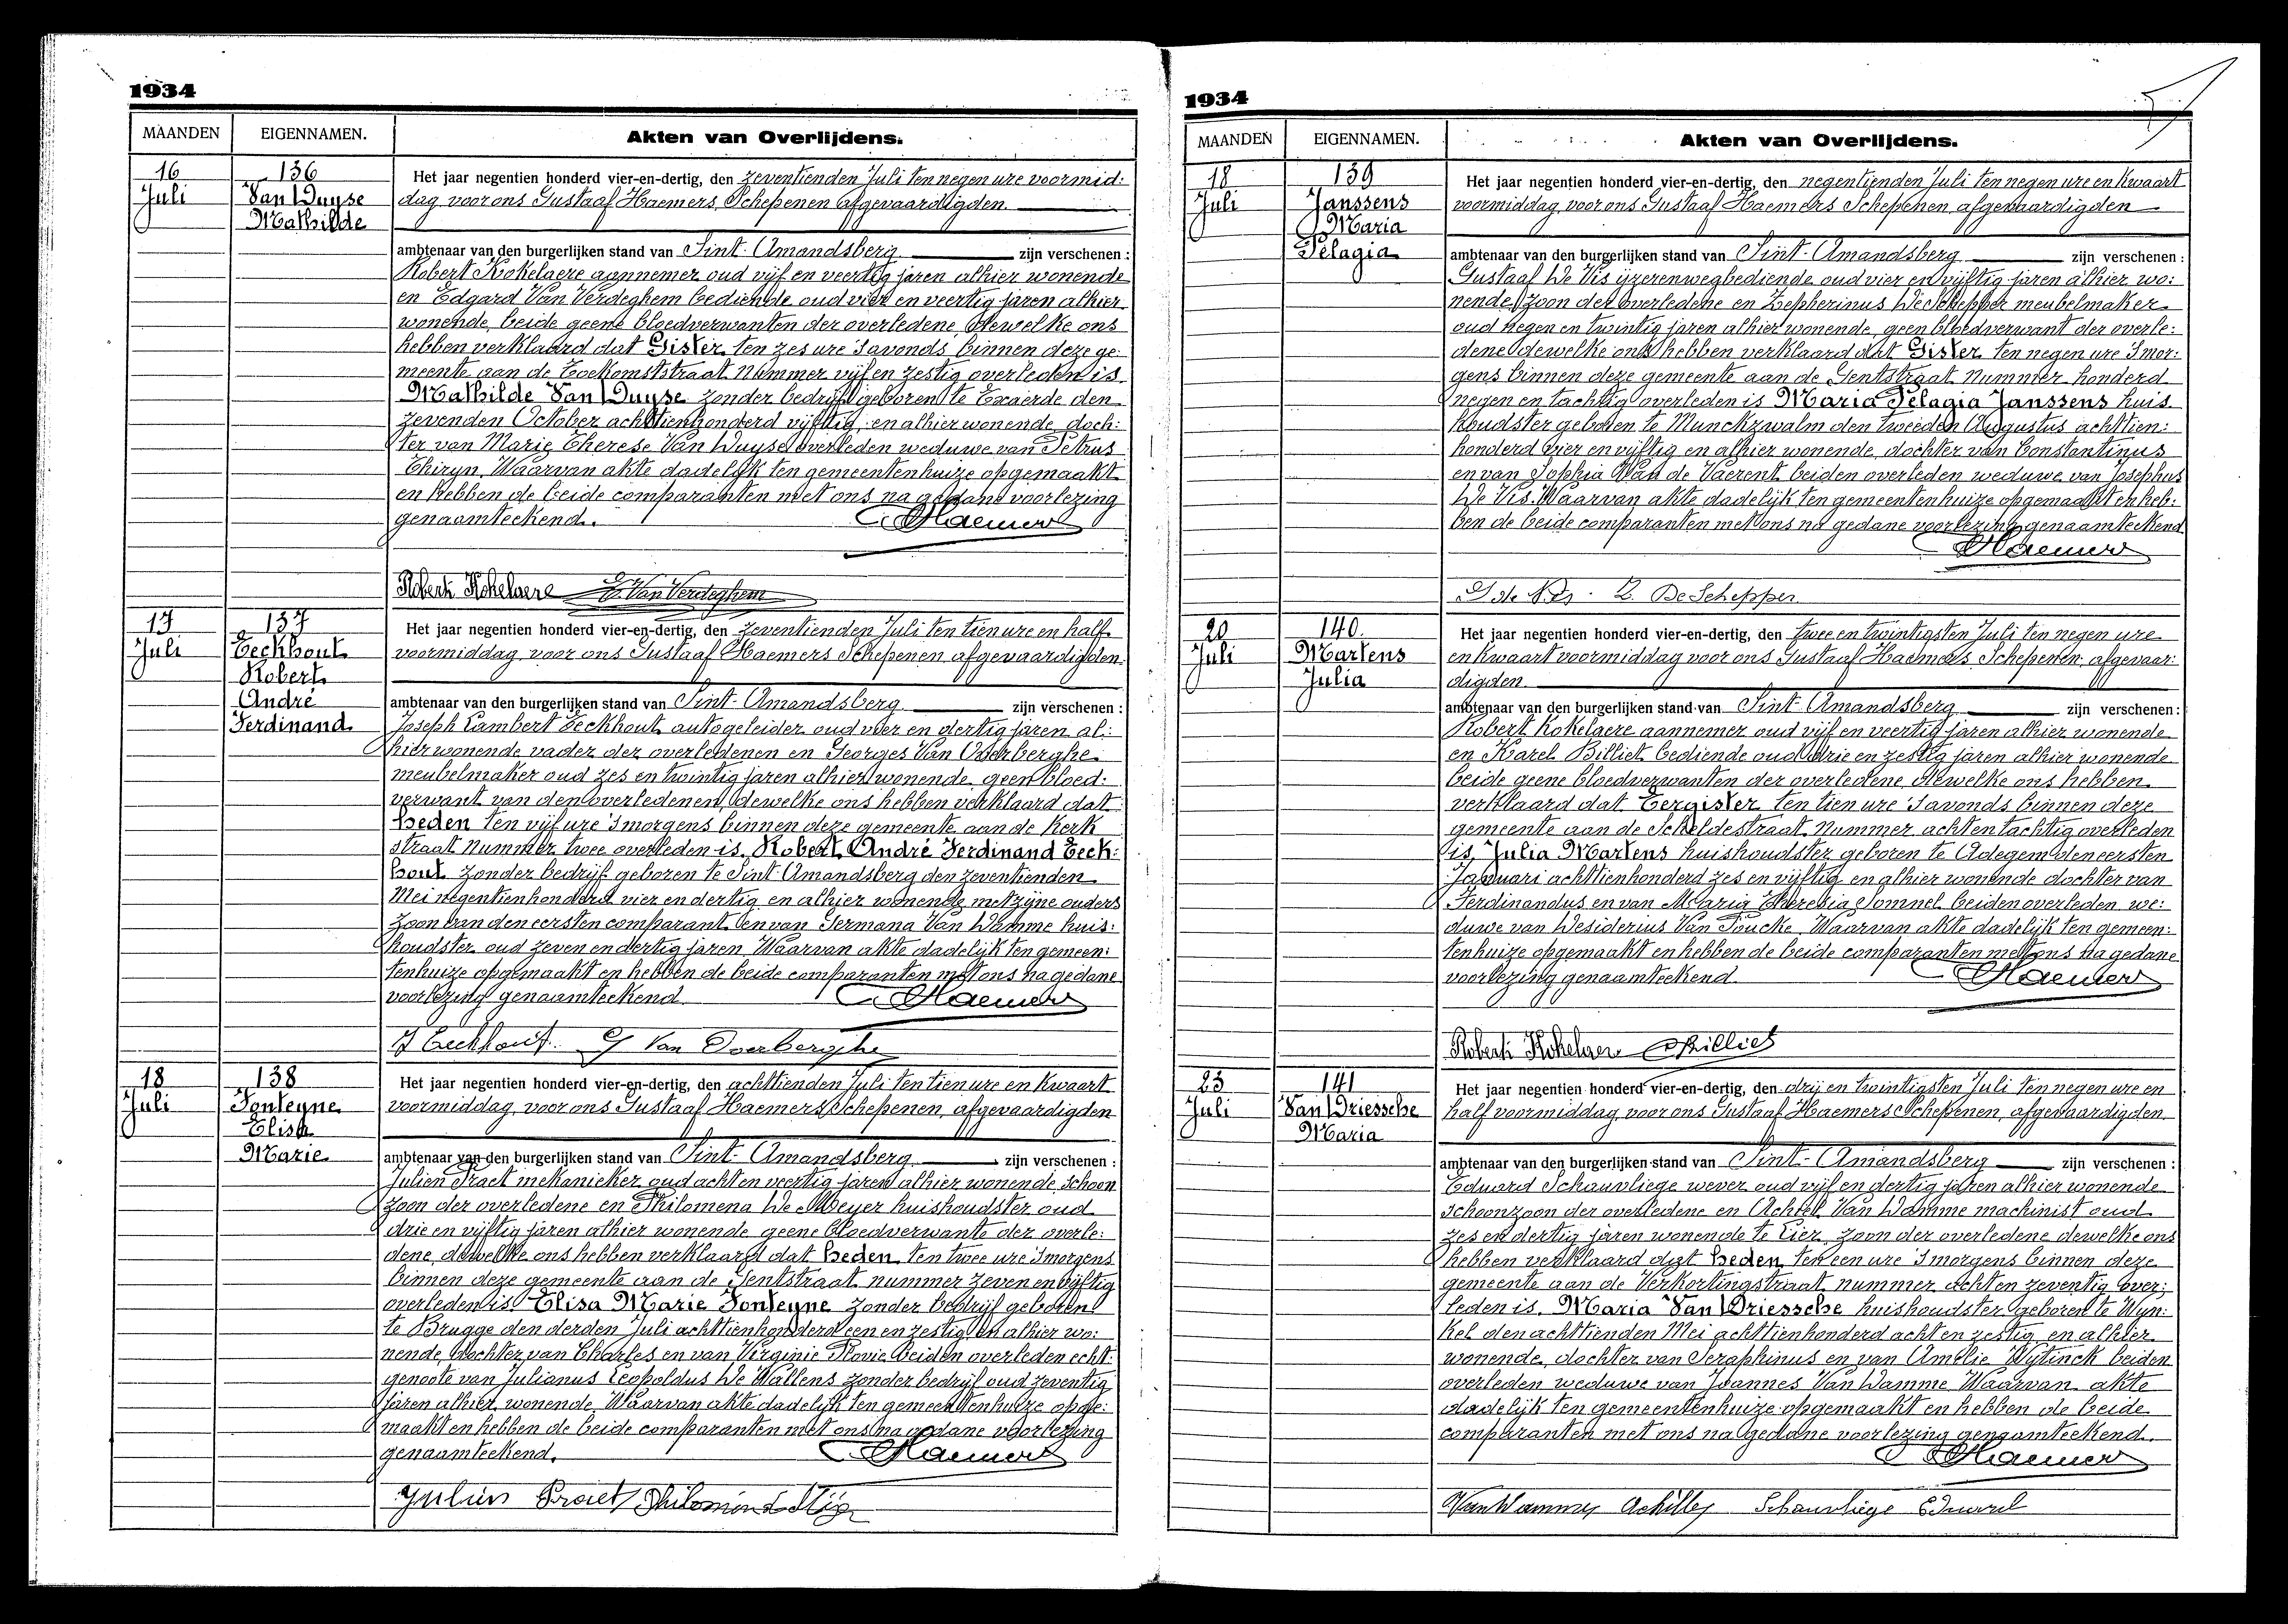 1934
MAANDEN EIGENNAMEN. Akten van Overlijdens.
16 136 Het jaar negentien honderd vier-en-dertig, den zeventienden Juli ten negen ure voormid:
Juli Van Duyse dag voor ons Gustaaf Haemers, Schepenen afgevaardigden
Mathilde
ambtenaar van den burgerlijken stand van Sint-Amandsberg zijn verschenen :
Robert Kokelaere aannemer oud vijf en veertig jaren alhier wonende
en Edgard Van Verdeghem bediende oud vier en veertig jaren alhier
wonende, beide geene bloedverwanten der overledene, dewelke ons
hebben verklaard dat Gister ten zes ure 's avonds binnen deze ge:
meente aan de Toekomststraat Nummer vijf en zestig overleden is
Mathilde Van Duyse zonder bedrijf geboren te Exaerde den
zevenden October achttienhonderd vijftig, en alhier wonende, doch:
ter van Marie Therese Van Duyse overleden weduwe van Petrus
Thiryn. Waarvan akte dadelijk ten gemeentenhuize opgemaakt
en hebben de beide comparanten met ons na gedane voorlezing
genaamteekend. Haemers
Robert Kokelaere E. Van Verdeghem
17 137 Het jaar negentien honderd vier-en-dertig, den zeventienden Juli ten tien ure en half
Juli Eeckhout voormiddag voor ons Gustaaf Haemers Schepenen, afgevaardigden
Robert
André ambtenaar van den burgerlijken stand van Sint-Amandsberg zijn verschenen :
Ferdinand Joseph Lambert Eeckhout autogeleider oud vier en dertig jaren al:
hier wonende vader der overledenen en Georges Van Overberghe
meubelmaker oud zes en twintig jaren alhier wonende geen bloed:
verwant van den overledenen, dewelke ons hebben verklaard dat
heden ten vijf ure 's morgens binnen deze gemeente aan de Kerk
straat nummer twee overleden is Robert André Ferdinand Eeck:
hout zonder bedrijf geboren te Sint-Amandsberg den zeventienden
Mei negentienhonderd vier en dertig en alhier wonende met zijne ouders
zoon van den eersten comparant en van Germana Van Damme huis:
houdster oud zeven en dertig jaren. Waarvan akte dadelijk ten gemeen:
tenhuize opgemaakt en hebben de beide comparanten met ons na gedane
voorlezing genaamteekend Haemers
J Eeckhout G Van Overberghe
18 138 Het jaar negentien honderd vier-en-dertig, den achttienden Juli ten tien ure en kwaart
Juli Fonteyne voormiddag, voor ons Gustaaf Haemers Schepenen, afgevaardigden
Elisa
Marie ambtenaar van den burgerlijken stand van Sint-Amandsberg zijn verschenen :
Julien Praet mekanieker oud acht en veertig jaren alhier wonende schoon
zoon der overledene en Philomena De Meyer huishoudster oud
drie en vijftig jaren alhier wonende geene bloedverwante der overle:
dene, dewelke ons hebben verklaard dat heden ten twee ure 's morgens
binnen deze gemeente aan de Gentstraat nummer zeven en vijftig
overleden is Elisa Marie Fonteyne zonder bedrijf geboren
te Brugge den derden Juli achttienhonderd een en zestig en alhier wo:
nende, dochter van Charles en van Virginie Plovie beiden overleden echt:
genoote van Julianus Leopoldus De Wallens zonder bedrijf oud zeventig
jaren alhier wonende. Waarvan akte dadelijk ten gemeentenhuize opge:
maakt en hebben de beide comparanten met ons na gedane voorlezing
genaamteekend. Haemers
Julien Praet Philomena
1934
MAANDEN EIGENNAMEN. Akten van Overlijdens.
18 139 Het jaar negentien honderd vier-en-dertig, den negentienden Juli ten negen ure en kwaart
Juli Janssens voormiddag, voor ons Gustaaf Haemers Schepenen, afgevaardigden
Maria
Pelagia ambtenaar van den burgerlijken stand van Sint-Amandsberg zijn verschenen :
Gustaaf De Vis ijzerenwegbediende oud vier en vijftig jaren alhier wo:
nende, zoon der overledene en Zepherinus De Schepper meubelmaker
oud negen en twintig jaren alhier wonende, geen bloedverwant der overle:
dene dewelke ons hebben verklaard dat Gister ten negen ure 's mor:
gens binnen deze gemeente aan de Gentstraat Nummer honderd
negen en tachtig overleden is Maria Pelagia Janssens huis
houdster geboren te Munckzwalm den tweeden Augustus achttien:
honderd vier en vijftig en alhier wonende, dochter van Constantinus
en van Sophia Van de Vaerent beiden overleden weduwe van Josephus
De Vis. Waarvan akte dadelijk ten gemeentenhuize opgemaakt en heb:
ben de beide comparanten met ons na gedane voorlezing genaamteekend
Haemers
G de Vis Z. De Schepper
20 140. Het jaar negentien honderd vier-en-dertig, den twee en twintigsten Juli ten negen ure
Juli Martens en kwaart voormiddag voor ons Gustaaf Haemers, Schepenen, afgevaar:
Julia digden
ambtenaar van den burgerlijken stand van Sint-Amandsberg zijn verschenen :
Robert Kokelaere aannemer oud vijf en veertig jaren alhier wonende
en Karel Billiet bediende oud drie en zestig jaren alhier wonende
beide geene bloedverwanten der overledene, dewelke ons hebben
verklaard dat Eergister ten tien ure 's avonds binnen deze
gemeente aan de Scheldestraat Nummer acht en tachtig overleden
is Julia Martens huishoudster geboren te Adegem den eersten
Januari achttienhonderd zes en vijftig en alhier wonende dochter van
Ferdinandus en van Maria Theresia Sommel beiden overleden we:
duwe van Desiderius Van Poucke. Waarvan akte dadelijk ten gemeen:
tenhuize opgemaakt en hebben de beide comparanten met ons na gedane
voorlezing genaamteekend. Haemers
Robert Kokelaere Billiet
23 141 Het jaar negentien honderd vier-en-dertig, den drij en twintigsten Juli ten negen ure en
Juli Van Driessche half voormiddag, voor ons Gustaaf Haemers Schepenen, afgevaardigden
Maria
ambtenaar van den burgerlijken stand van Sint-Amandsberg zijn verschenen :
Eduard Schauvliege wever oud vijf en dertig jaren alhier wonende
schoonzoon der overledene en Achiel Van Damme machinist oud
zes en dertig jaren wonende te Lier, zoon der overledene dewelke ons
hebben verklaard dat heden ten een ure 's morgens binnen deze
gemeente aan de Verkortingstraat nummer acht en zeventig over:
leden is, Maria Van Driessche huishoudster geboren te Wyn:
kel den achttienden Mei achttienhonderd acht en zestig en alhier
wonende, dochter van Seraphinus en van Amelie Wytinck beiden
overleden weduwe van Joannes Van Damme. Waarvan akte
dadelijk ten gemeentenhuize opgemaakt en hebben de beide
comparanten met ons na gedane voorlezing genaamteekend.
Haemers
Van Damme Achille Schauvliege Eduard